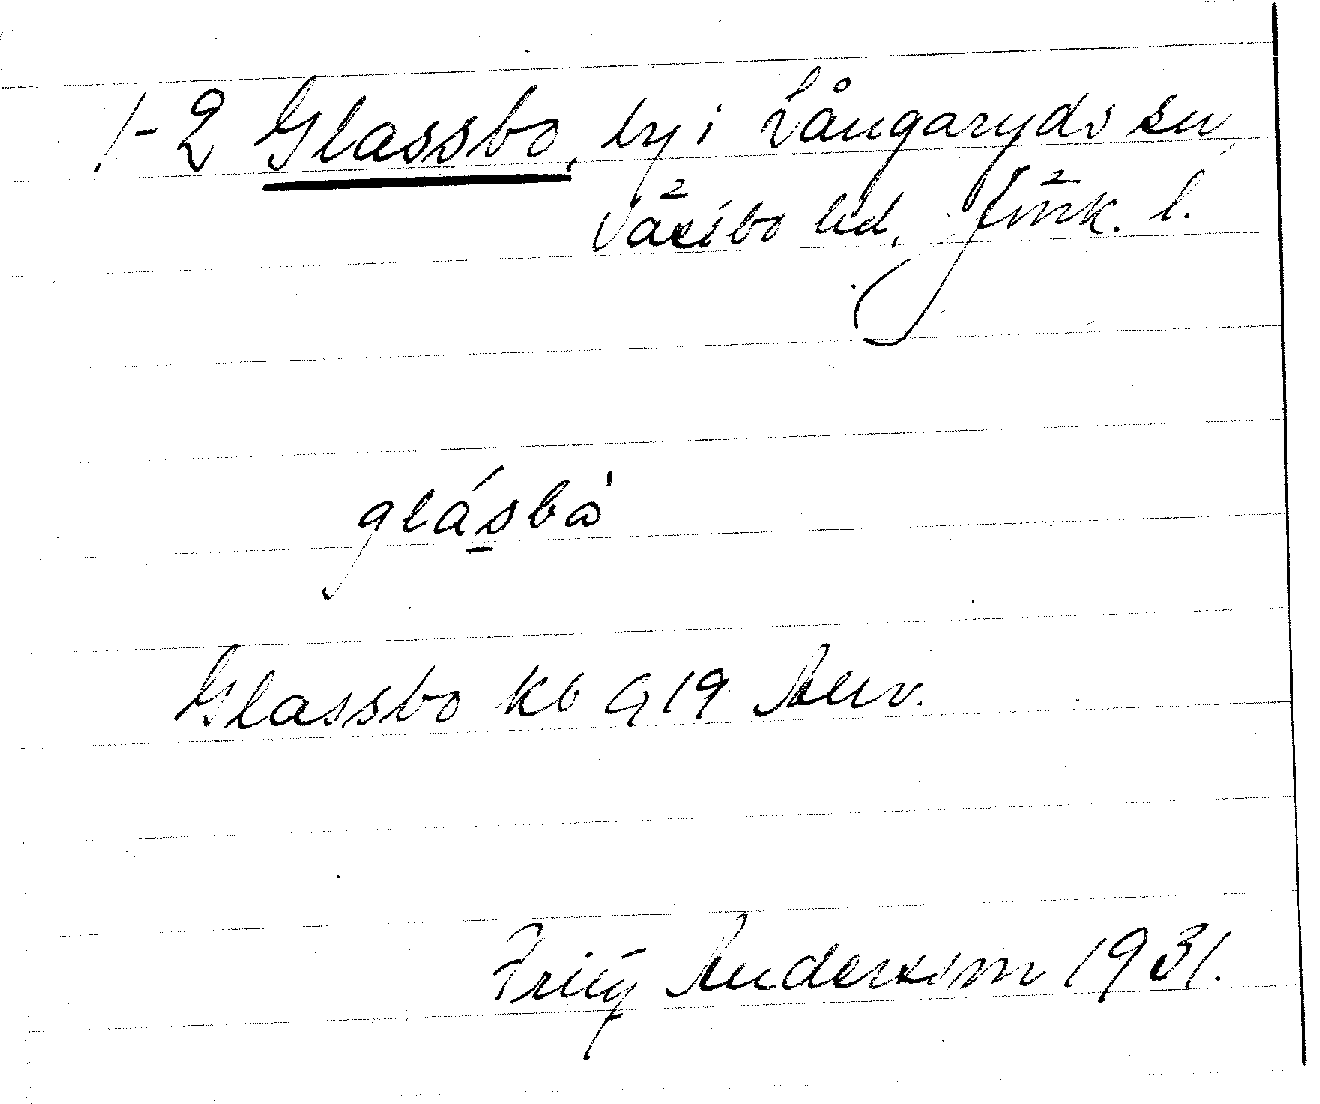 1-2 Glassbo, by i Långaryds sn,
Västbo hd, Jönk. l.
glásbò
Glassbo kb G 19 Anv.
Andersson 1931.